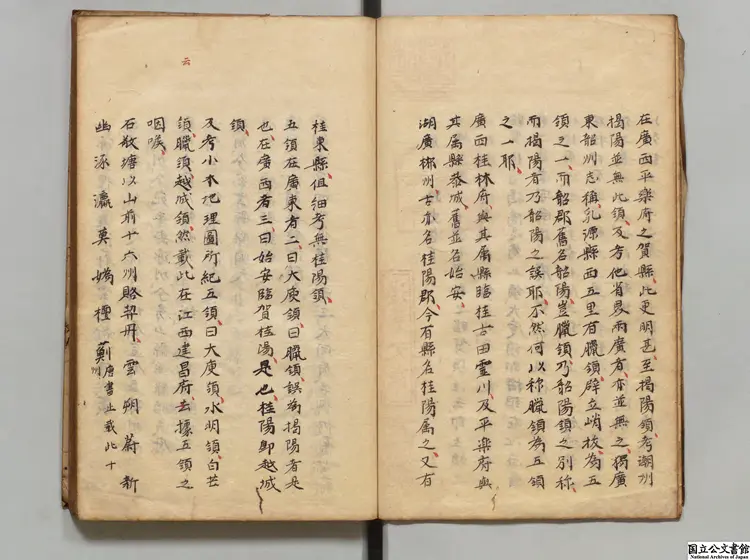 在廣西平樂府之賀縣此更明甚至揭陽領考潮州
揭陽並無此領及考他省易兩廣者亦並無之獨廣
東韶州志稱乳源縣西五里有臘領壁立峭拔為五
領之一而韶郡舊名韶陽豈臘領乃韶陽領之別稱
而揭陽者乃韶陽之誤耶不然何以称臘領為五領
之一耶
廣西桂林府與其属縣臨桂古田靈川及平樂府與
其属縣恭城舊並名始安
湖廣郴州古亦名桂陽郡今有縣名桂陽属之又有
桂東縣但細考無桂陽領
五領在廣東者二曰大庾領曰臘領誤為揭陽者是
也在廣西者三曰始安臨賀桂陽是也桂陽即越城
領
及考小本地理圖所紀五領曰大庾領水明領白芒
領臘領越城領然載此在江西建昌府去據五領之
咽喉
石敬塘以山前十六州賂契丹雲朔蔚新
幽涿瀛莫媯檀薊州唐書止載此十
云
国立公文書館
National Archives of Japan